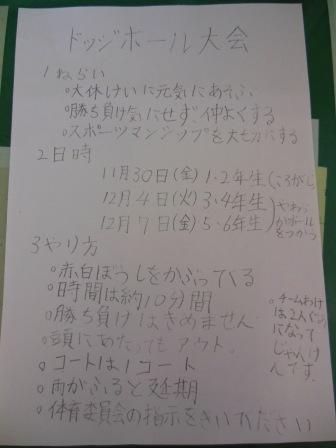 ドッジボール大会
1 ねらい
○大休けいに元気にあそぶ
○勝ち負け気にせず仲よくする
○スポーツマンシップを大切にする
2 日時
11月30日(金) 1・2年生(ころがし)
12月4日(火) 3・4年生
12月7日(金) 5・6年生
やわらかボールをつかう
3 やり方
○赤白ぼうしをかぶってくる
○時間は約10分間
○勝ち負けはきめません
○頭にあたってもアウト。
○コートは1コート
○雨がふると延期
○体育委員会の指示をきいてください
○チームわけ
は2人ぐみ
になって
じゃんけ
んです。